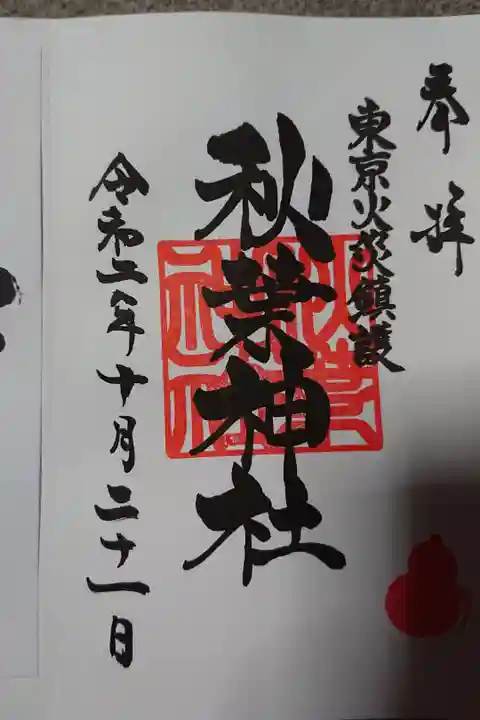 奉拝
東京火災鎮護
秋葉神社
令和二年十月二十一日